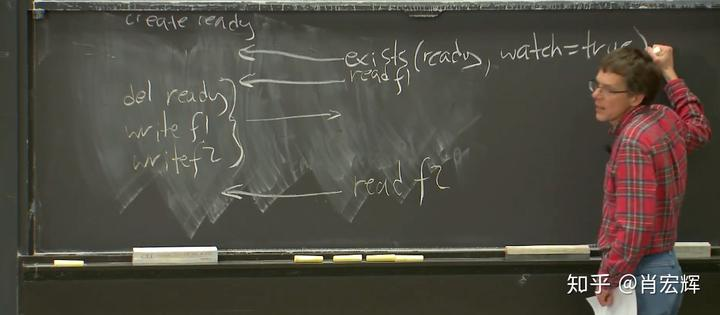 create ready
exists(ready, watch=true)
read f1
del ready
write f1
write f2
read f2
知乎 @肖宏辉